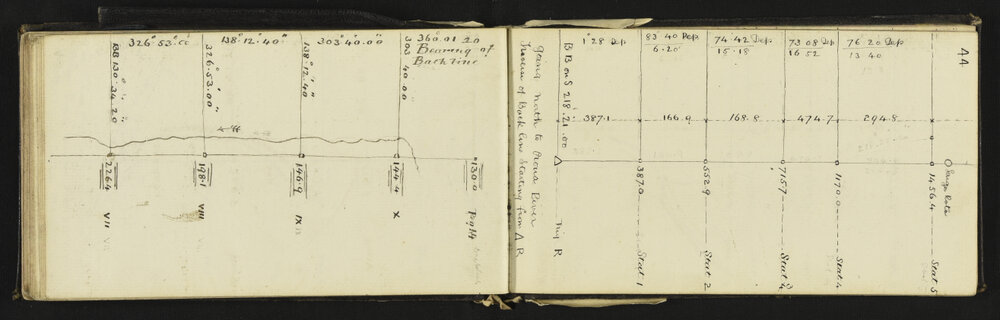 326°.53'.00"
138°.12'.40"
303°.40.00
360.01 20
Bearing of
Back line
BB 130°.34'.20"
326.53.00"
138°.12'.40"
303 40.00
2264
198.1
146.9
144.4
1300
VII
VIII
IX
X
Traverse of Back line Starting from Δ R
going North to River
BB on S 218°.21'.00
Δ
R
44
1°28 Dep
83 40 Dep
6.20
74.42 Dep
15.18
73 08 Dep
16 52
76 20 Dep
13 40
387.1
166.9
168.8
474.7
294.8
3870
5529
7157
1170.0
1456.4
Stat 1
Stat 2
Stat 4
Stat 5